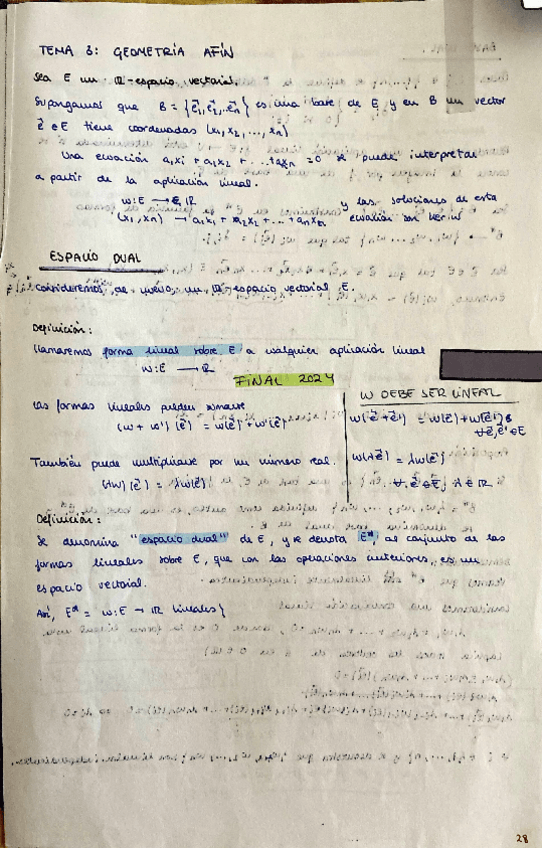 TEMA 3: GEOMETRÍA AFÍN
Sea E un ℝ-espacio vectorial.
Supongamos que B = {e⃗₁, e⃗₂, ..e⃗ₙ} es una base de E, y en B un vector
e⃗ ∈ E tiene coordenadas (x₁, x₂, ..., xₙ)
Una ecuación a₁x₁ + a₂x₂ + ... + aₙxₙ = 0 se puede interpretar
a partir de la aplicación lineal.
w: E → ℝ y las soluciones de esta
(x₁, xₙ) → a₁x₁ + a₂x₂ + ... + aₙxₙ ecuación son Ker w
ESPACIO DUAL
Consideremos, de nuevo, un ℝ-espacio vectorial E.
Definición:
Llamaremos forma lineal sobre E a cualquier aplicación lineal
w: E → ℝ
FINAL 2024
Las formas lineales pueden sumarse
(w + w')(e⃗) = w(e⃗) + w'(e⃗)
W DEBE SER LINEAL
w(e⃗ + e⃗') = w(e⃗) + w(e⃗')
∀ e⃗, e⃗' ∈ E
También puede multiplicarse por un número real.
(λw)(e⃗) = λw(e⃗)
w(λe⃗) = λw(e⃗)
∀ e⃗ ∈ E, λ ∈ ℝ
Definición:
Se denomina "espacio dual" de E, y se denota E*, al conjunto de las
formas lineales sobre E, que con las operaciones anteriores, es un
espacio vectorial.
Así, E* = w: E → ℝ lineales}
28